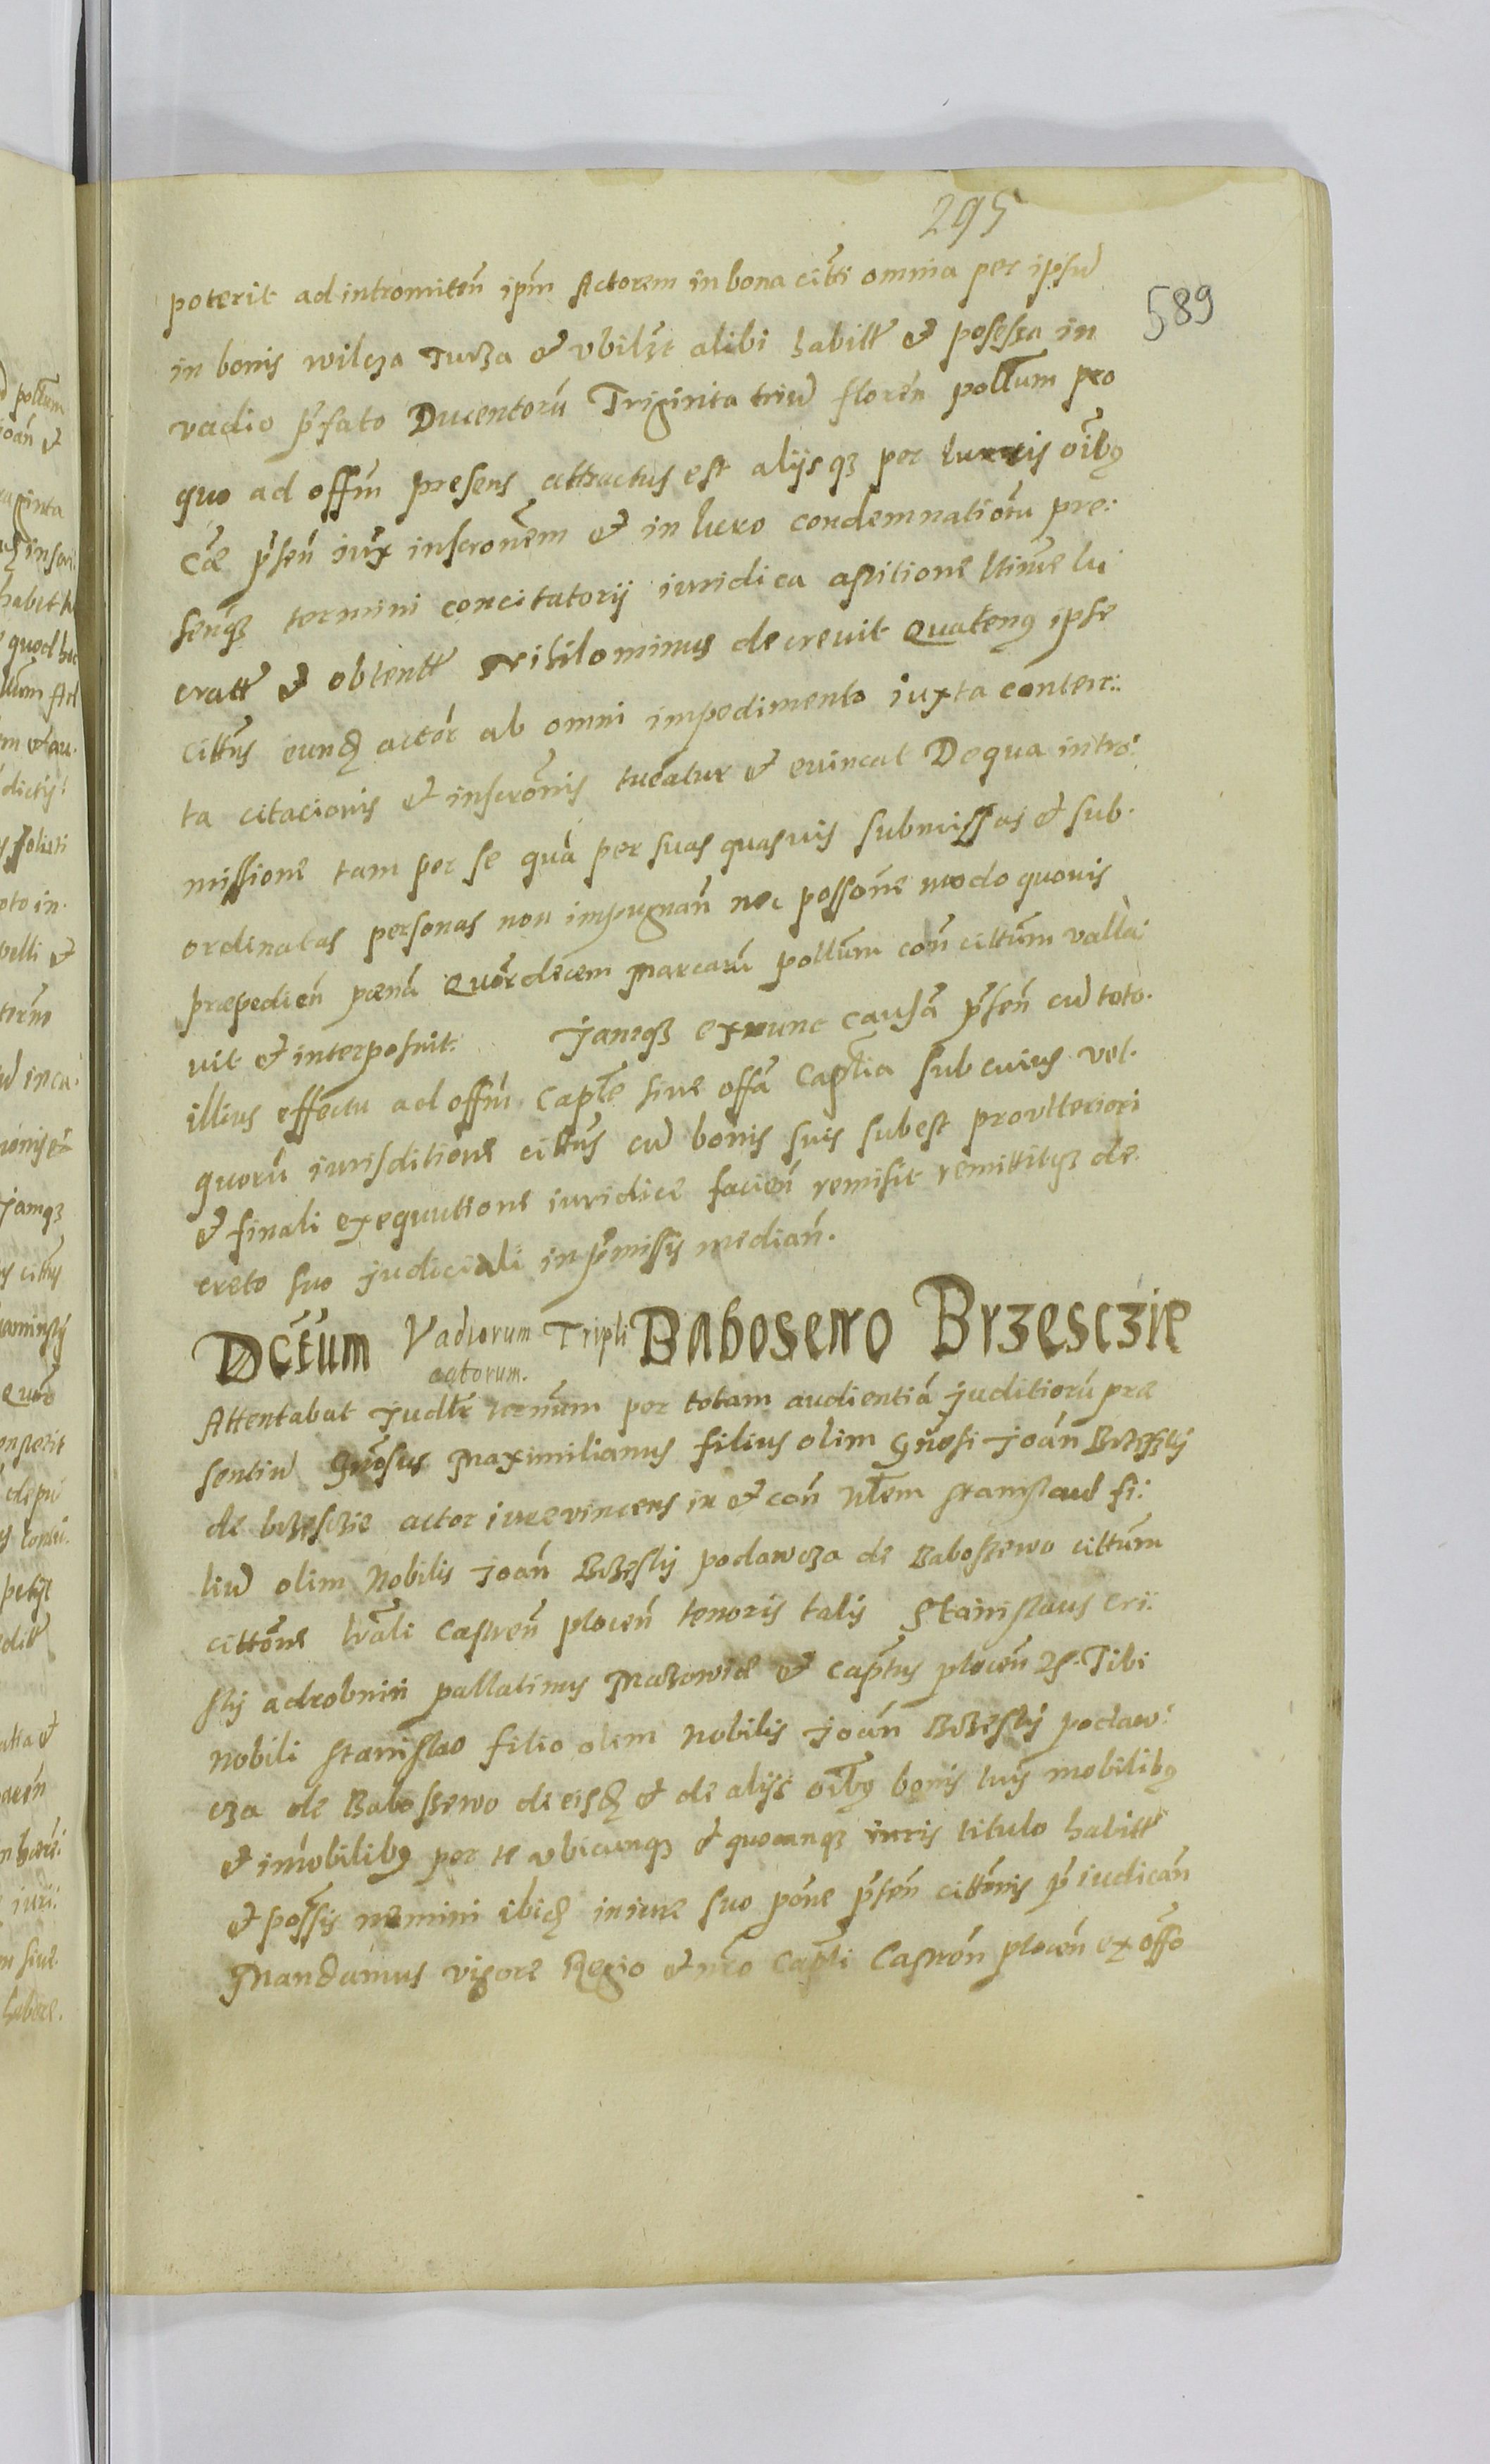 295
589
poterit ad intromitten̄ ipm̄ Actorem in bona citti omnia per ipsū
in bonis wilcza Turza et vbilꝫt alibi habitt et posessa in
vadio p̄fato Ducentorū Triginta triū floren̄ pollum pro
quo ad offm̄ presens attractus est alijsqꝫ per lucris oībꝰ
cāe p̄sen̄ iux̄ inscronem et in lucro condemnationū pre:
senqꝫ termini concitatorij iuridica astitione ltime lu
cratt et obtentt Nihilominus decreuit Quatenꝰ ipse
cittus eund actor ab omni impedimento iuxta conten:
ta citacionis et inscronis tueatur et euincat De qua intro:
missione tam per se quā per suas quasuis submissas et sub.
ordinatas personas non impugnan̄ nec possone modo quouis
præpedien̄ pænā Quordecem Marcarū pollum con̄ cittum valla:
uit et interposuit. Jamqꝫ exnunc causā p̄sen̄ cū toto.
illius effectu ad offm̄ Capte siue offā Captlia sub cuius vel.
quorū iurisditione cittus cū bonis suis subest pro vlteriori
et finali exequutione iuridice facien̄ remisit remittitqꝫ de.
creto suo judiciali in p̄missis median̄.
Dctum Vadiorum Tripli Babosewo Brzesczie
catorum.
Attentabat Judltr ternūm per totam audientiā judiciorū præ
sentiū Gnosus Maximilianus filius olim Gnosi Joan̄ Brzeskij
de brzesczie actor iure vincens in et con̄ Nlem Stanislaū fi:
liū olim Nobilis Joan̄ Brzeskij podawcza de Baboszewo cittum
cittone lrali Castren̄ plocen̄ tenoris talis Stanislaus cri:
skij a drobnin pallatinus Mazowiæ et Captus plocen̄ ꝛc. Tibi
Nobili Stanislao filio olim Nobilis Joan̄ Brzeskij podaw:
cza de Baboszewo de eisd et de alijs oībꝰ bonis tuis mobilibꝰ
et imobilibꝰ per te vbicunqꝫ et quocunqꝫ iuris titulo habitt
et possis nemini ibid in iure suo pōne p̄sen̄ cittonis p̄iudican̄
Mandamus vigore Regio et nro Captli Castren̄ plocen̄ ex offo